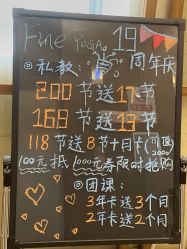 Fine YOGA 19
周年庆
◎私教:
200节送17节
168节送13节
118节送8节+月卡
100元抵1000元券限时抢
◎团课:
3年卡送3个月
2年卡送2个月